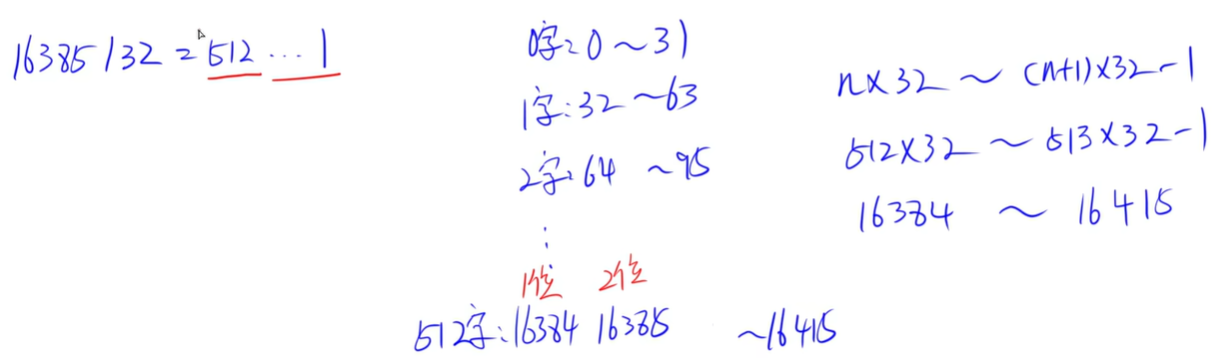 16385 / 32 = 512 ... 1
0字: 0 ~ 31
1字: 32 ~ 63
2字: 64 ~ 95
⋮
1位 2位
512字: 16384 16385 ~ 16415
n×32 ~ (n+1)×32-1
512×32 ~ 513×32-1
16384 ~ 16415